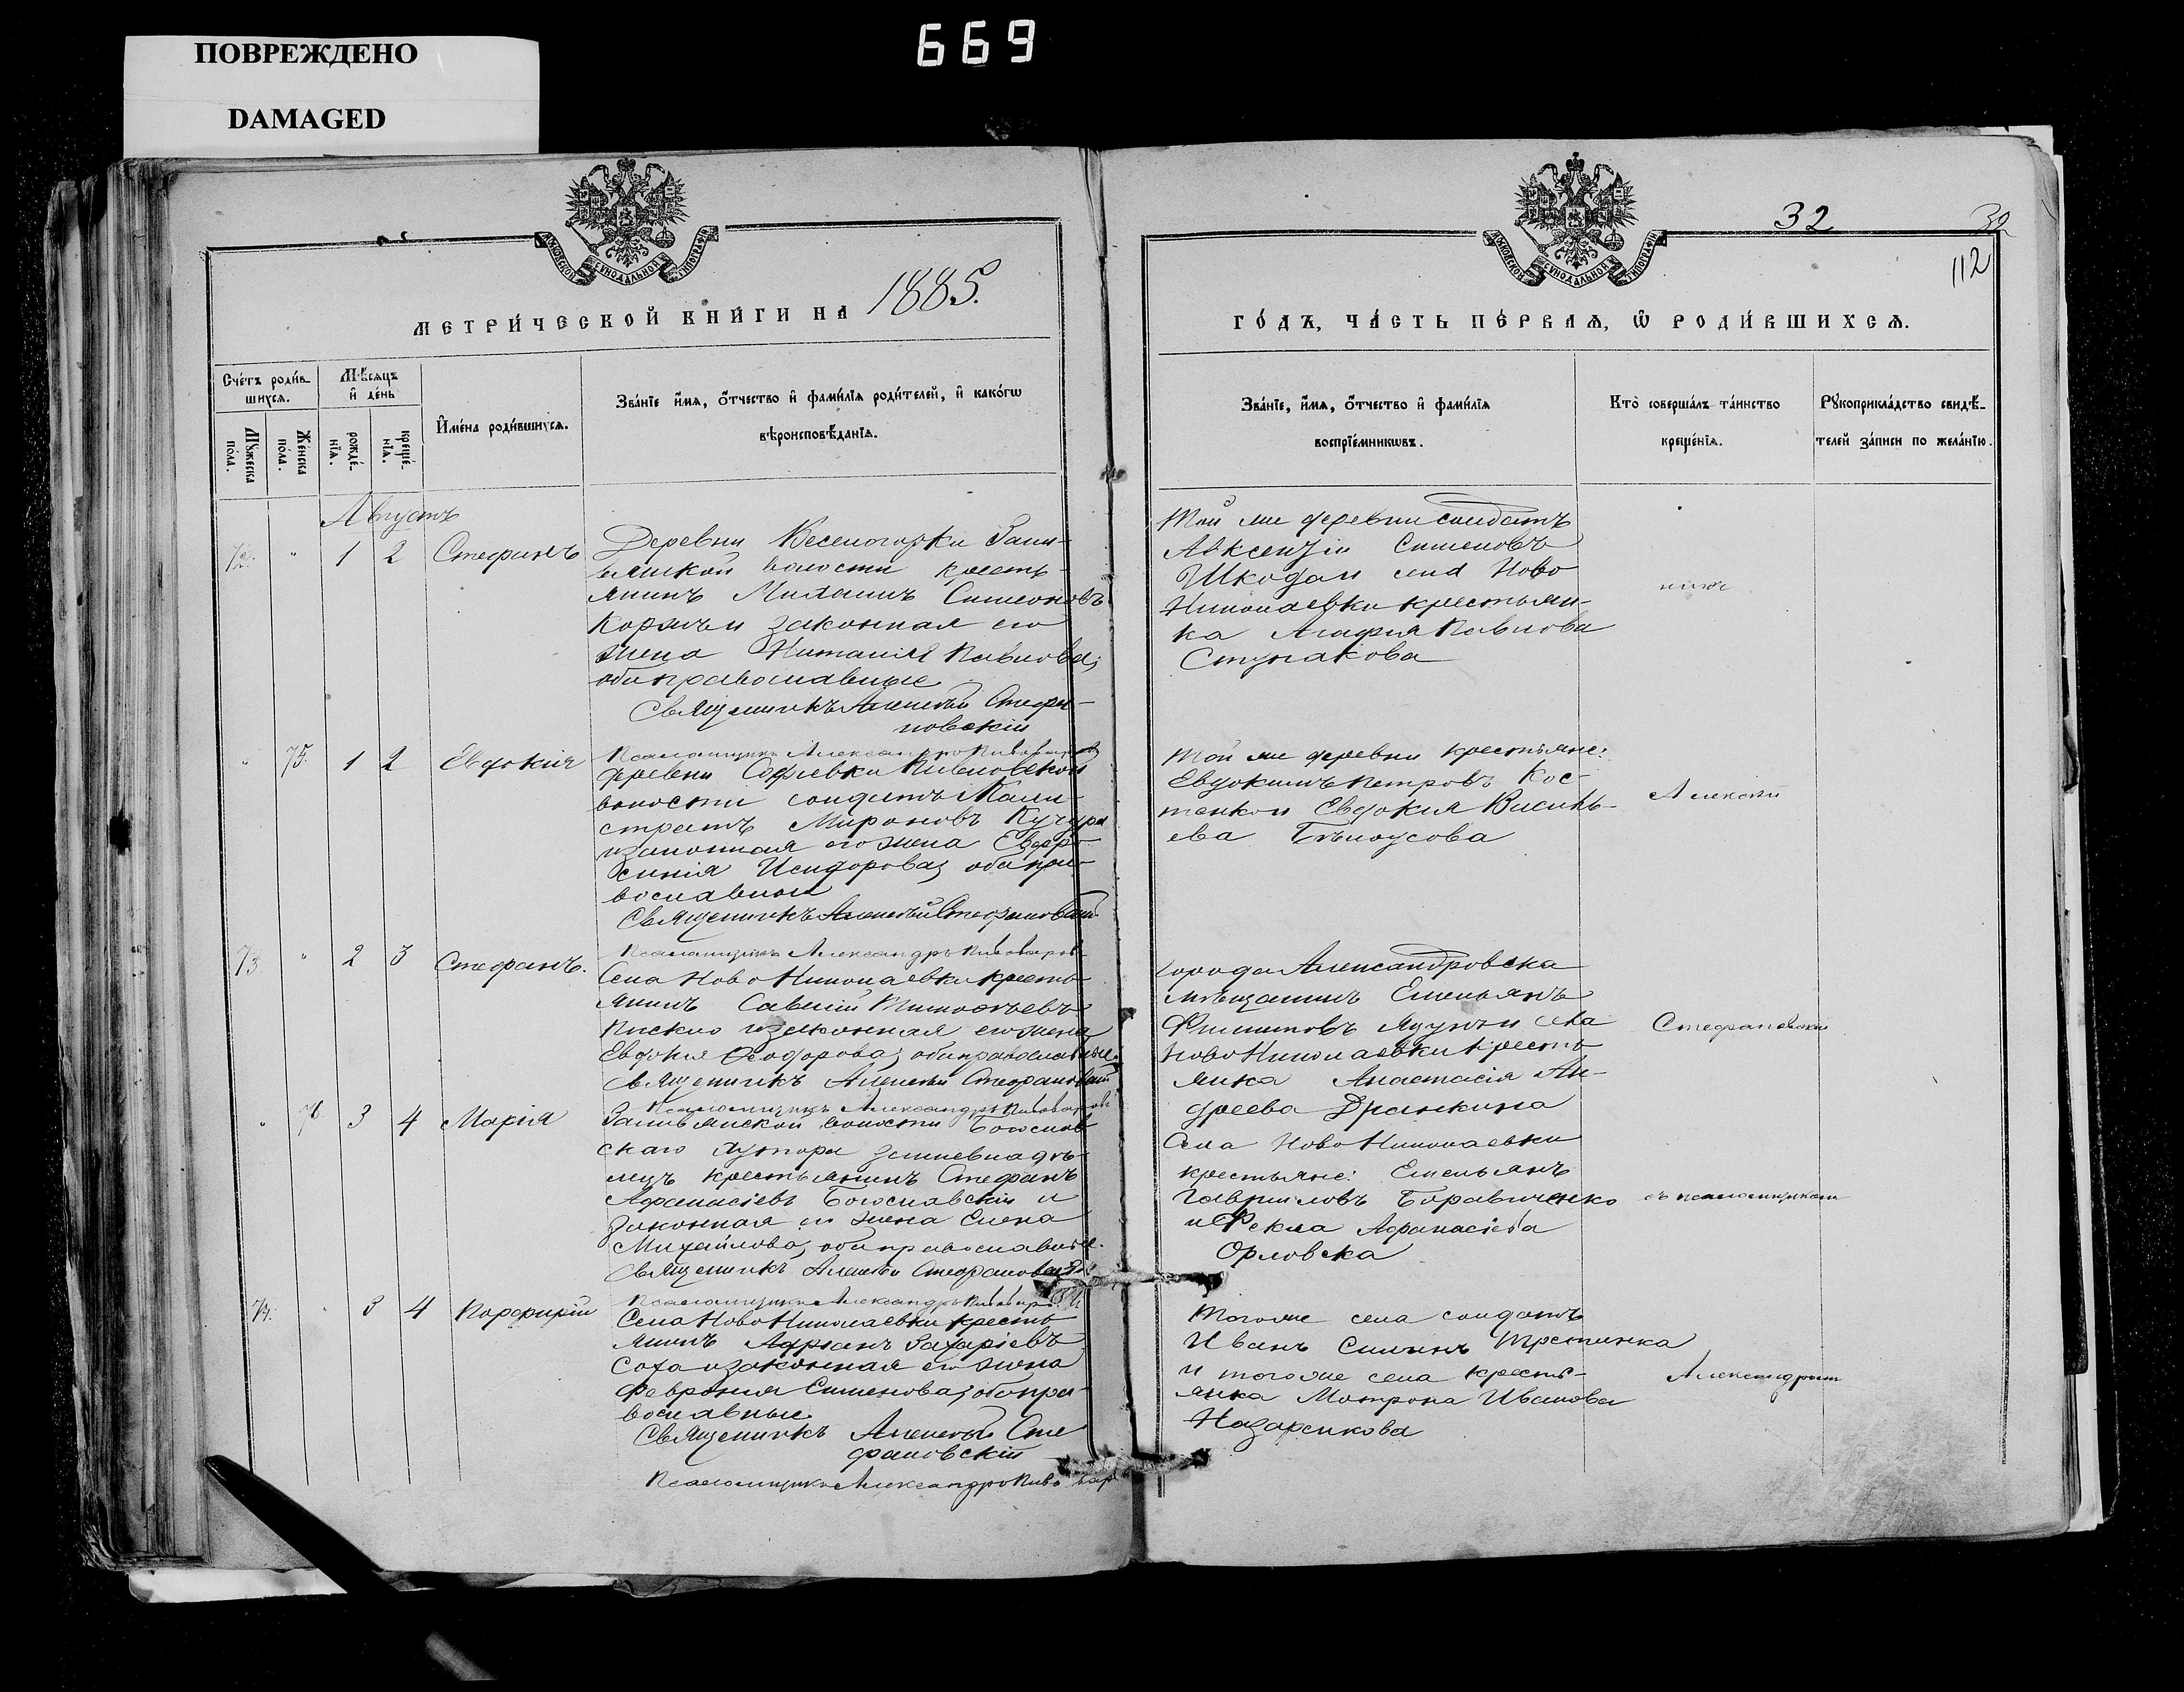 669
ПОВРЕЖДЕНО
DAMAGED
МОСКОВСКОЙ СѴНОДАЛЬНОЙ ТИПОГРАФІИ
МЕТРИ́ЧЕСКОЙ КНИ́ГИ НА 1885.
Сче́тъ роди́в-
шихсѧ.
Мѣ́сѧцъ
и҆ де́нь
Мꙋ́жеска
по́ла.
Же́нска
по́ла.
рожде́-
нїѧ.
креще́-
нїѧ.
И҆мена̀ роди́вшихсѧ.
Зва́нїе и҆́мѧ, ѻ҆́тчество и҆ фами́лїѧ роди́телей, и҆ како́гѡ
вѣроисповѣ́данїѧ.
Августъ
72. " 1 2 Стефанъ
Деревни Веселогорки Зали-
вянской волости кресть-
янинъ Михаилъ Симеоновъ
законная его
жена Наталія Павлова;
оба православные
Священникъ Алексѣй Стефа-
новскій
Псаломщикъ Александръ Пивоваровъ
" 75. 1 2 Евдокія
деревни Софіевки
волости солдатъ Кали-
стратъ Мироновъ Кучера
и законная его жена Евфро-
синія Исидорова, оба пра-
вославные
Священникъ Алексѣй Стефановскій
Псаломщикъ Александръ Пивоваровъ
73. " 2 3 Стефанъ.
Села Ново Николаевки кресть-
янинъ Савелій Тимофѣевъ
и законная его жена
Евдокія Ѳеодорова, оба православные.
Священникъ Алексѣй Стефановскій
Псаломщикъ Александръ Пивоваровъ
" 76. 3 4 Марія
Заливянской волости Богослов-
скаго хутора землевладѣ-
лецъ крестьянинъ Стефанъ
Афанасіевъ Богославскій и
законная его жена Елена
Михайлова, оба православные.
Священникъ Алексѣй Стефановскій
Псаломщикъ Александръ Пивоваровъ
74. " 3 4 Порфирій
Села Ново Николаевки кресть-
янинъ Адріанъ Захаріевъ
Соха и законная его жена
Феврония Сименова, оба пра-
вославные
Священникъ Алексѣй Сте
фановскій
Псаломщикъ Александръ Пивовар
32
32
112
МОСКОВСКОЙ СѴНОДАЛЬНОЙ ТИПОГРАФІИ
ГО́ДЪ, ЧА́СТЬ ПЕ́РВАѦ, Ѡ҆ РОДИ́ВШИХСѦ.
Зва́нїе, и҆́мѧ, ѻ҆́тчество и҆ фами́лїѧ
воспрїе́мникѡвъ.
Кто̀ соверша́лъ та́инство
креще́нїѧ.
Рꙋкоприкла́дство свидѣ́-
телей за́писи по жела́нїю.
Той же деревни солдатъ
Авксентій Сименовъ
Шкода и села Ново
Николаевки крестьян-
ка Агафія Павлова
Ступакова
Той же деревни крестьяне:
Евдокимъ Петровъ Кос-
тенко и Евдокия Василь-
ева Бѣлоусова
Алексѣй
города Александровска
мѣщанинъ Емельянъ
Филиповъ и села
Ново Николаевки кресть-
янка Анастасія Ан-
дреева Дранкина
Стефановскій
Села Ново Николаевки
крестьяне: Емельянъ
Гавриловъ Боравиченко
и Фекла Афанасіева
Орловска
съ псаломщикомъ
Того же села солдатъ
Иванъ Силинъ
и того же села кресть-
янка Матрона Иванова
Назаренкова
Александромъ